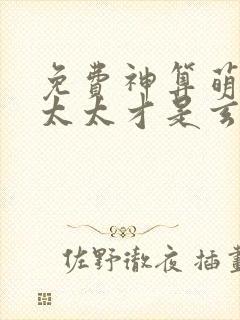 免費神算萌
太太才是玄
佐野徹夜 插畫